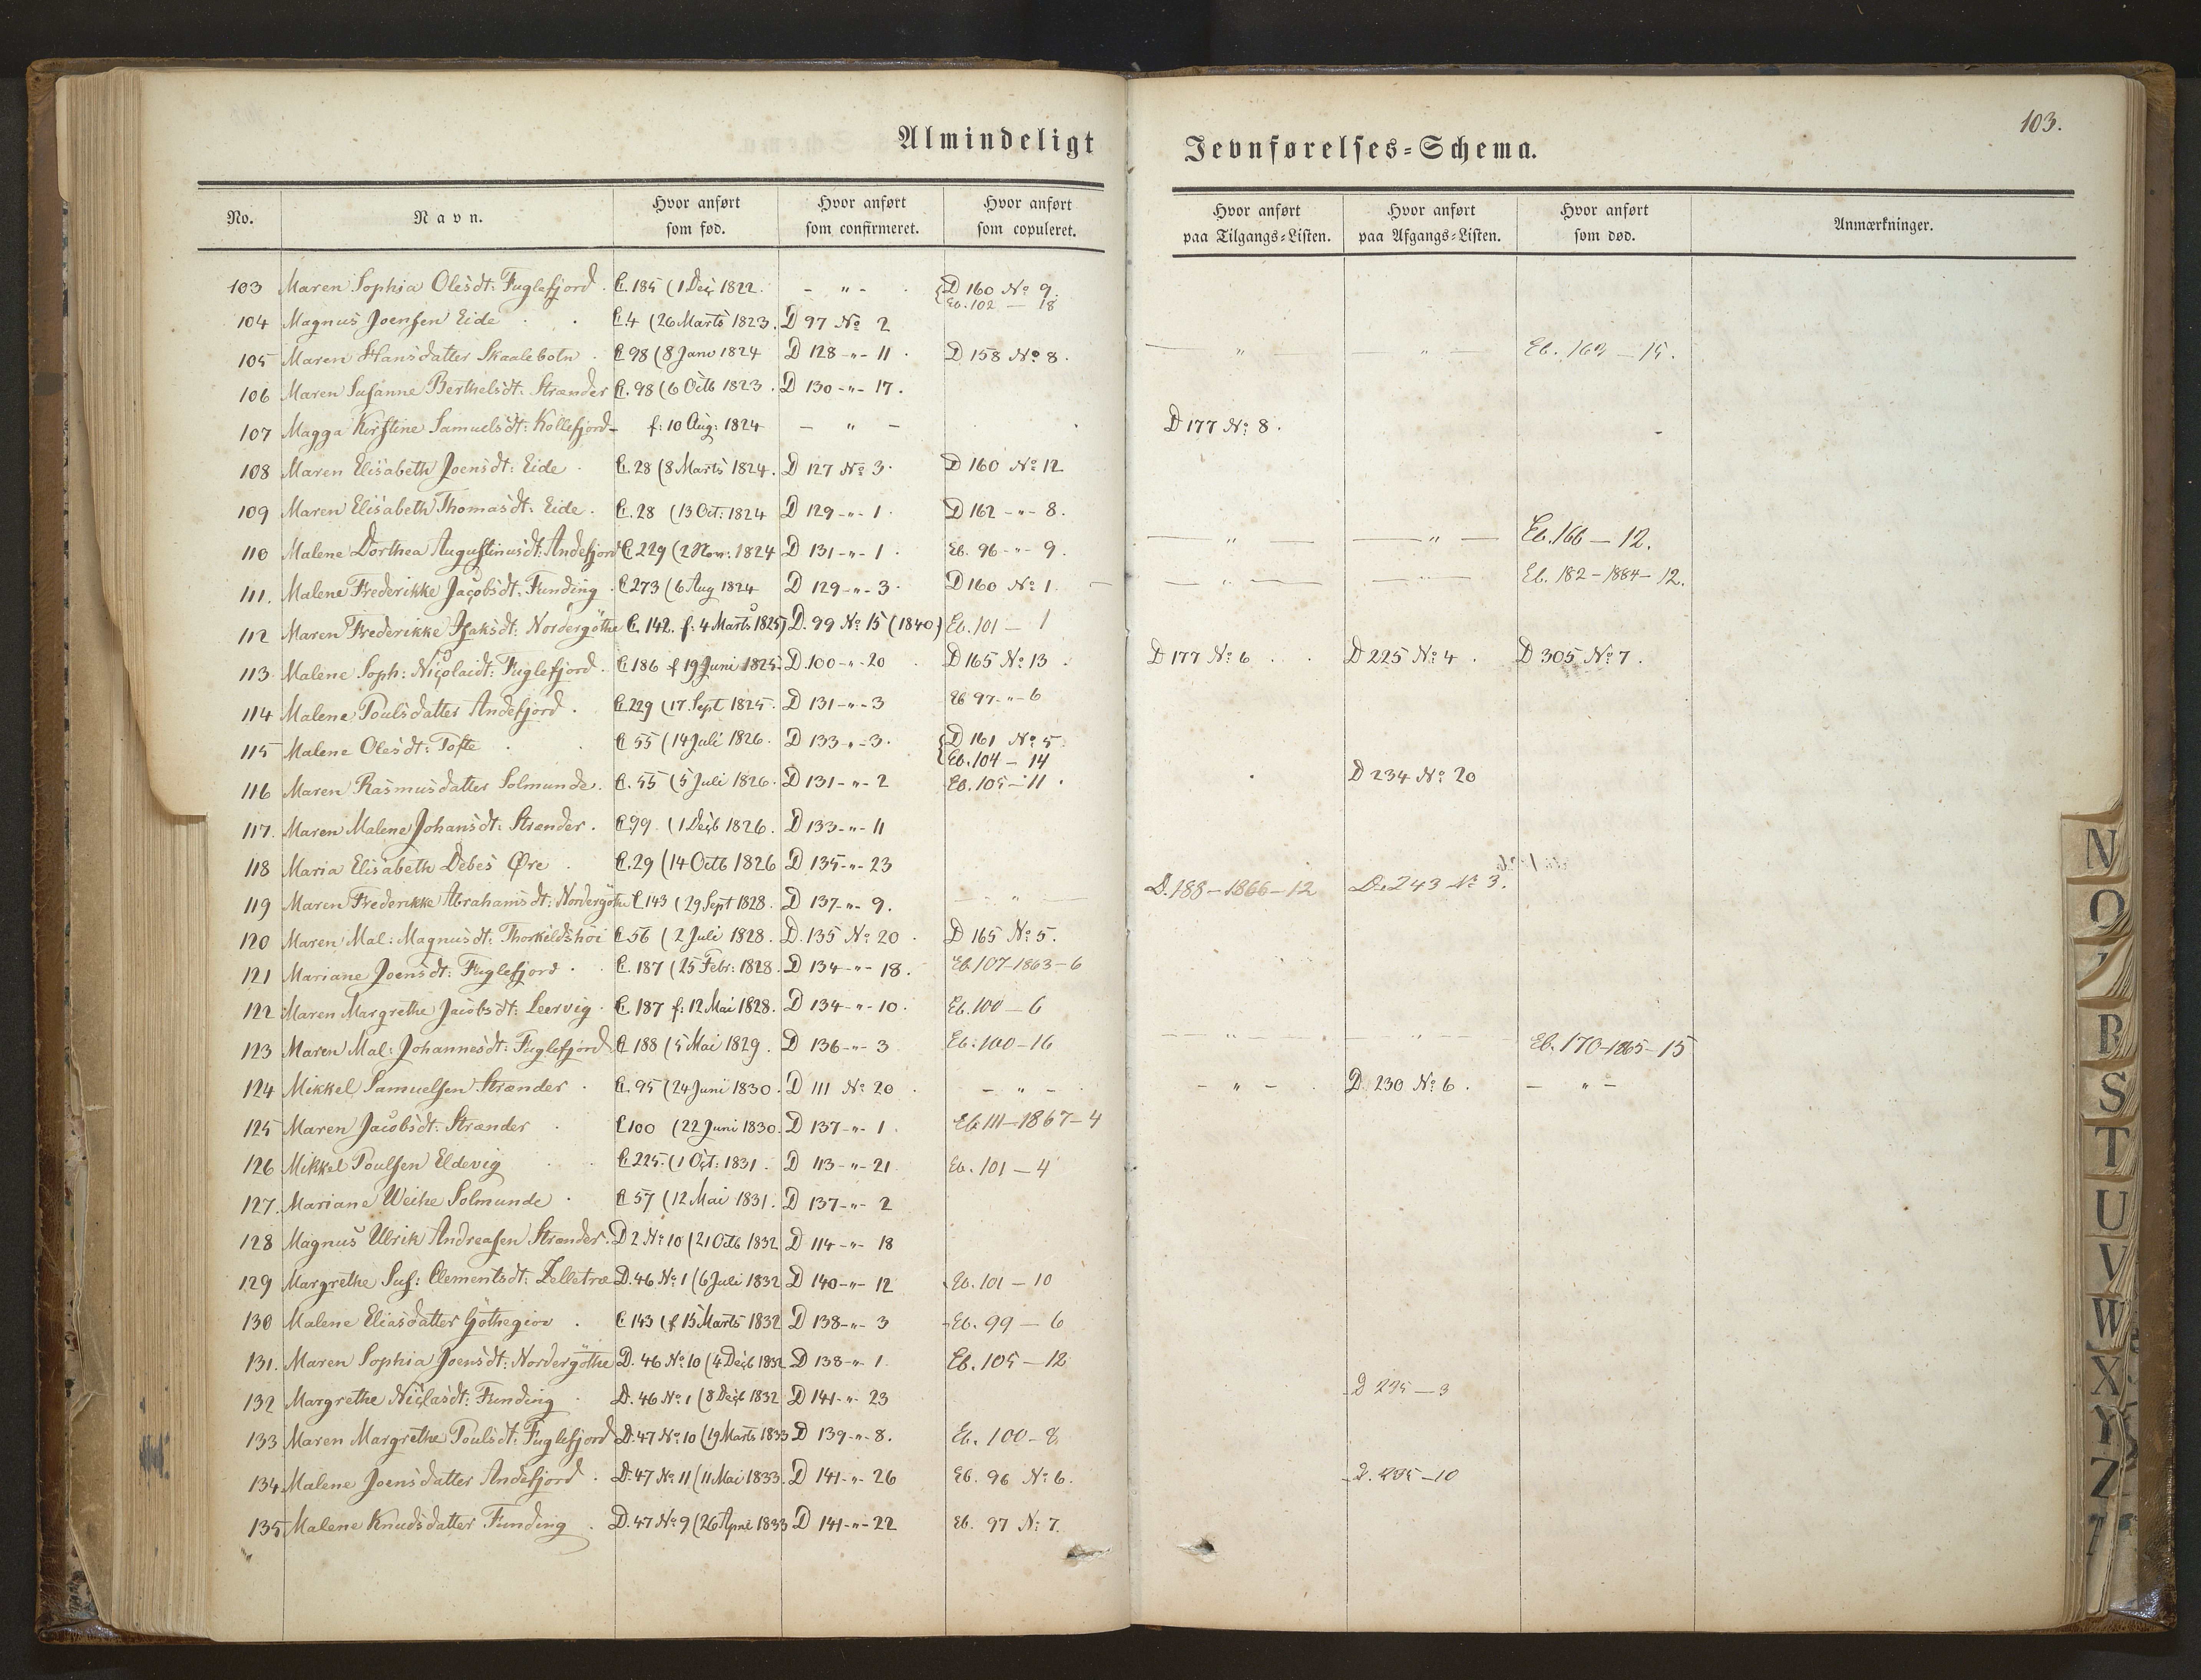 103.
Almindeligt Jevnførelses=Schema.
No. Navn. Hvor anført som fød. Hvor anført som confirmeret. Hvor anført som copuleret. Hvor anført paa Tilgangs=Listen. Hvor anført paa Afgangs=Listen. Hvor anført som død. Anmærkninger.
103 Maren Sophia Olesdt: Fuglefjord. C. 185 (1 Dec 1822. - " - { D 160 No 9.
Eb. 102 — 18
104 Magnus Joensen Eide C. 4 (26 Marts 1823. D 97 No 2
105 Maren Hansdatter Skaalebotn C. 98 (8 Janv 1824 D 128 -"- 11. D 158 No 8. — " — — " — Eb. 169 — 15.
106 Maren Susanne Berthelsdt: Strænder C. 98 (6 Octb 1823. D 130 -"- 17.
107 Magga Kirstine Samuelsdt: Kollefjord f: 10 Aug: 1824 — " — D 177 No 8.
108 Maren Elisabeth Joensdt: Eide C. 28 (8 Marts 1824. D 127 No 3. D 160 No 12
109 Maren Elisabeth Thomasdt: Eide. C. 28 (13 Oct: 1824 D 129 -"- 1. D 162 -"- 8.
110 Malene Dorthea Augustinusdt: Andefjord C 229 (2 Nov: 1824 D 131 -"- 1. Eb. 96 -"- 9. — " — — " — Eb. 166 — 12.
111. Malene Frederikke Jacobsdt: Funding. C 273 (6 Aug 1824 D 129 -"- 3. D 160 No 1. — " — — " — Eb. 182 - 1884 - 12.
112 Maren Frederikke Isaksdt: Nordergöthe C. 142. f: 4 Marts 1825) D. 99 No 15 (1840) Eb. 101 — 1
113 Malene Soph: Nicolaidt: Fuglefjord. C 186 f 19 Juni 1825. D. 100 -"- 20 D 165 No 13. D 177 No 6 D 225 No 4. D 305 No 7.
114 Malene Poulsdatter Andefjord. C. 229 (17. Sept 1825. D 131 -"- 3 Eb 97 -"- 6
115 Malene Olesdt: Tofte C 55 (14 Juli 1826. D 133 -"- 3. { D 161 No 5.
Eb. 104 — 14
116 Maren Rasmusdatter Solmunde. C. 55 (5 Juli 1826. D 131 -"- 2 Eb. 105 — 11. D 234 No 20
117. Maren Malene Johansdt: Strænder. C 99. (1 Decb 1826. D 133 -"- 11
118 Maria Elisabeth Debes Øre C. 29 (14 Octb 1826 D 135 -"- 23
119 Maren Frederikke Abrahamsdt: Nordergöthe C 143 (29 Sept 1828. D 137 -"- 9. — " — D. 188 - 1866 - 12 D. 243 No 3.
120 Maren Mal: Magnusdt: Thorkildshöi C 56 (2 Juli 1828. D. 135 No 20. D 165 No 5.
121 Mariane Joensdt: Fuglefjord. C. 187 (25 Febr: 1828. D 134 -"- 18. Eb. 107-1863-6
122 Maren Margrethe Jacobsdt: Leervig. C. 187 f: 12 Mai 1828. D 134 -"- 10. Eb. 100 — 6
123 Maren Mal: Johannesdt: Fuglefjord C 188 (5 Mai 1829. D 136 -"- 3 Eb. 100 - 16 — " — — " — Eb. 170-1865-15
124 Mikkel Samuelsen Strænder. C. 95 (24 Juni 1830. D 111 No 20 — " — — " — D. 230 No 6. — " —
125 Maren Jacobsdt: Strænder C 100 (22 Juni 1830. D 137 -"- 1. Eb. 111 - 1867 - 4
126 Mikkel Poulsen Eldevig C. 225. (1 Oct: 1831. D 113 -"- 21. Eb. 101 — 4
127. Mariane Weihe Solmunde. C 57 (12 Mai 1831. D 137 -"- 2
128 Magnus Ulrik Andreasen Strænder. D 2 No 10 (21 Octb 1832 D 114 -"- 18
129 Margrethe Sus: Clementsdt: Zelletræ D. 46 No 1 (6 Juli 1832 D 140 -"- 12 Eb. 101 — 10
130 Malene Eliasdatter Göthegiov. C 143 (f 15 Marts 1832 D 138 -"- 3 Eb. 99 — 6
131. Maren Sophia Joensdt: Nordergöthe D. 46 No 10 (4 Decb 1832 D 138 -"- 1 Eb. 105 — 12
132 Margrethe Niclasdt: Funding. D. 46 No 1 (8 Decb 1832 D 141 -"- 23 D 235 — 3
133 Maren Margrethe Poulsdt: Fuglefjord D. 47 No 10 (19 Marts 1833 D 139 -"- 8. Eb. 100 - 8.
134 Malene Joensdatter Andefjord. D. 47 No 11 (11 Mai 1833. D 141 -"- 26 Eb. 96 No 6. D. 235 — 10
135 Malene Knudsdatter Funding. D. 47 No 9 (26 April 1833 D 141 -"- 22 Eb. 97 No 7.
N
O
R
S
T
U
V
W
X
Y
Z